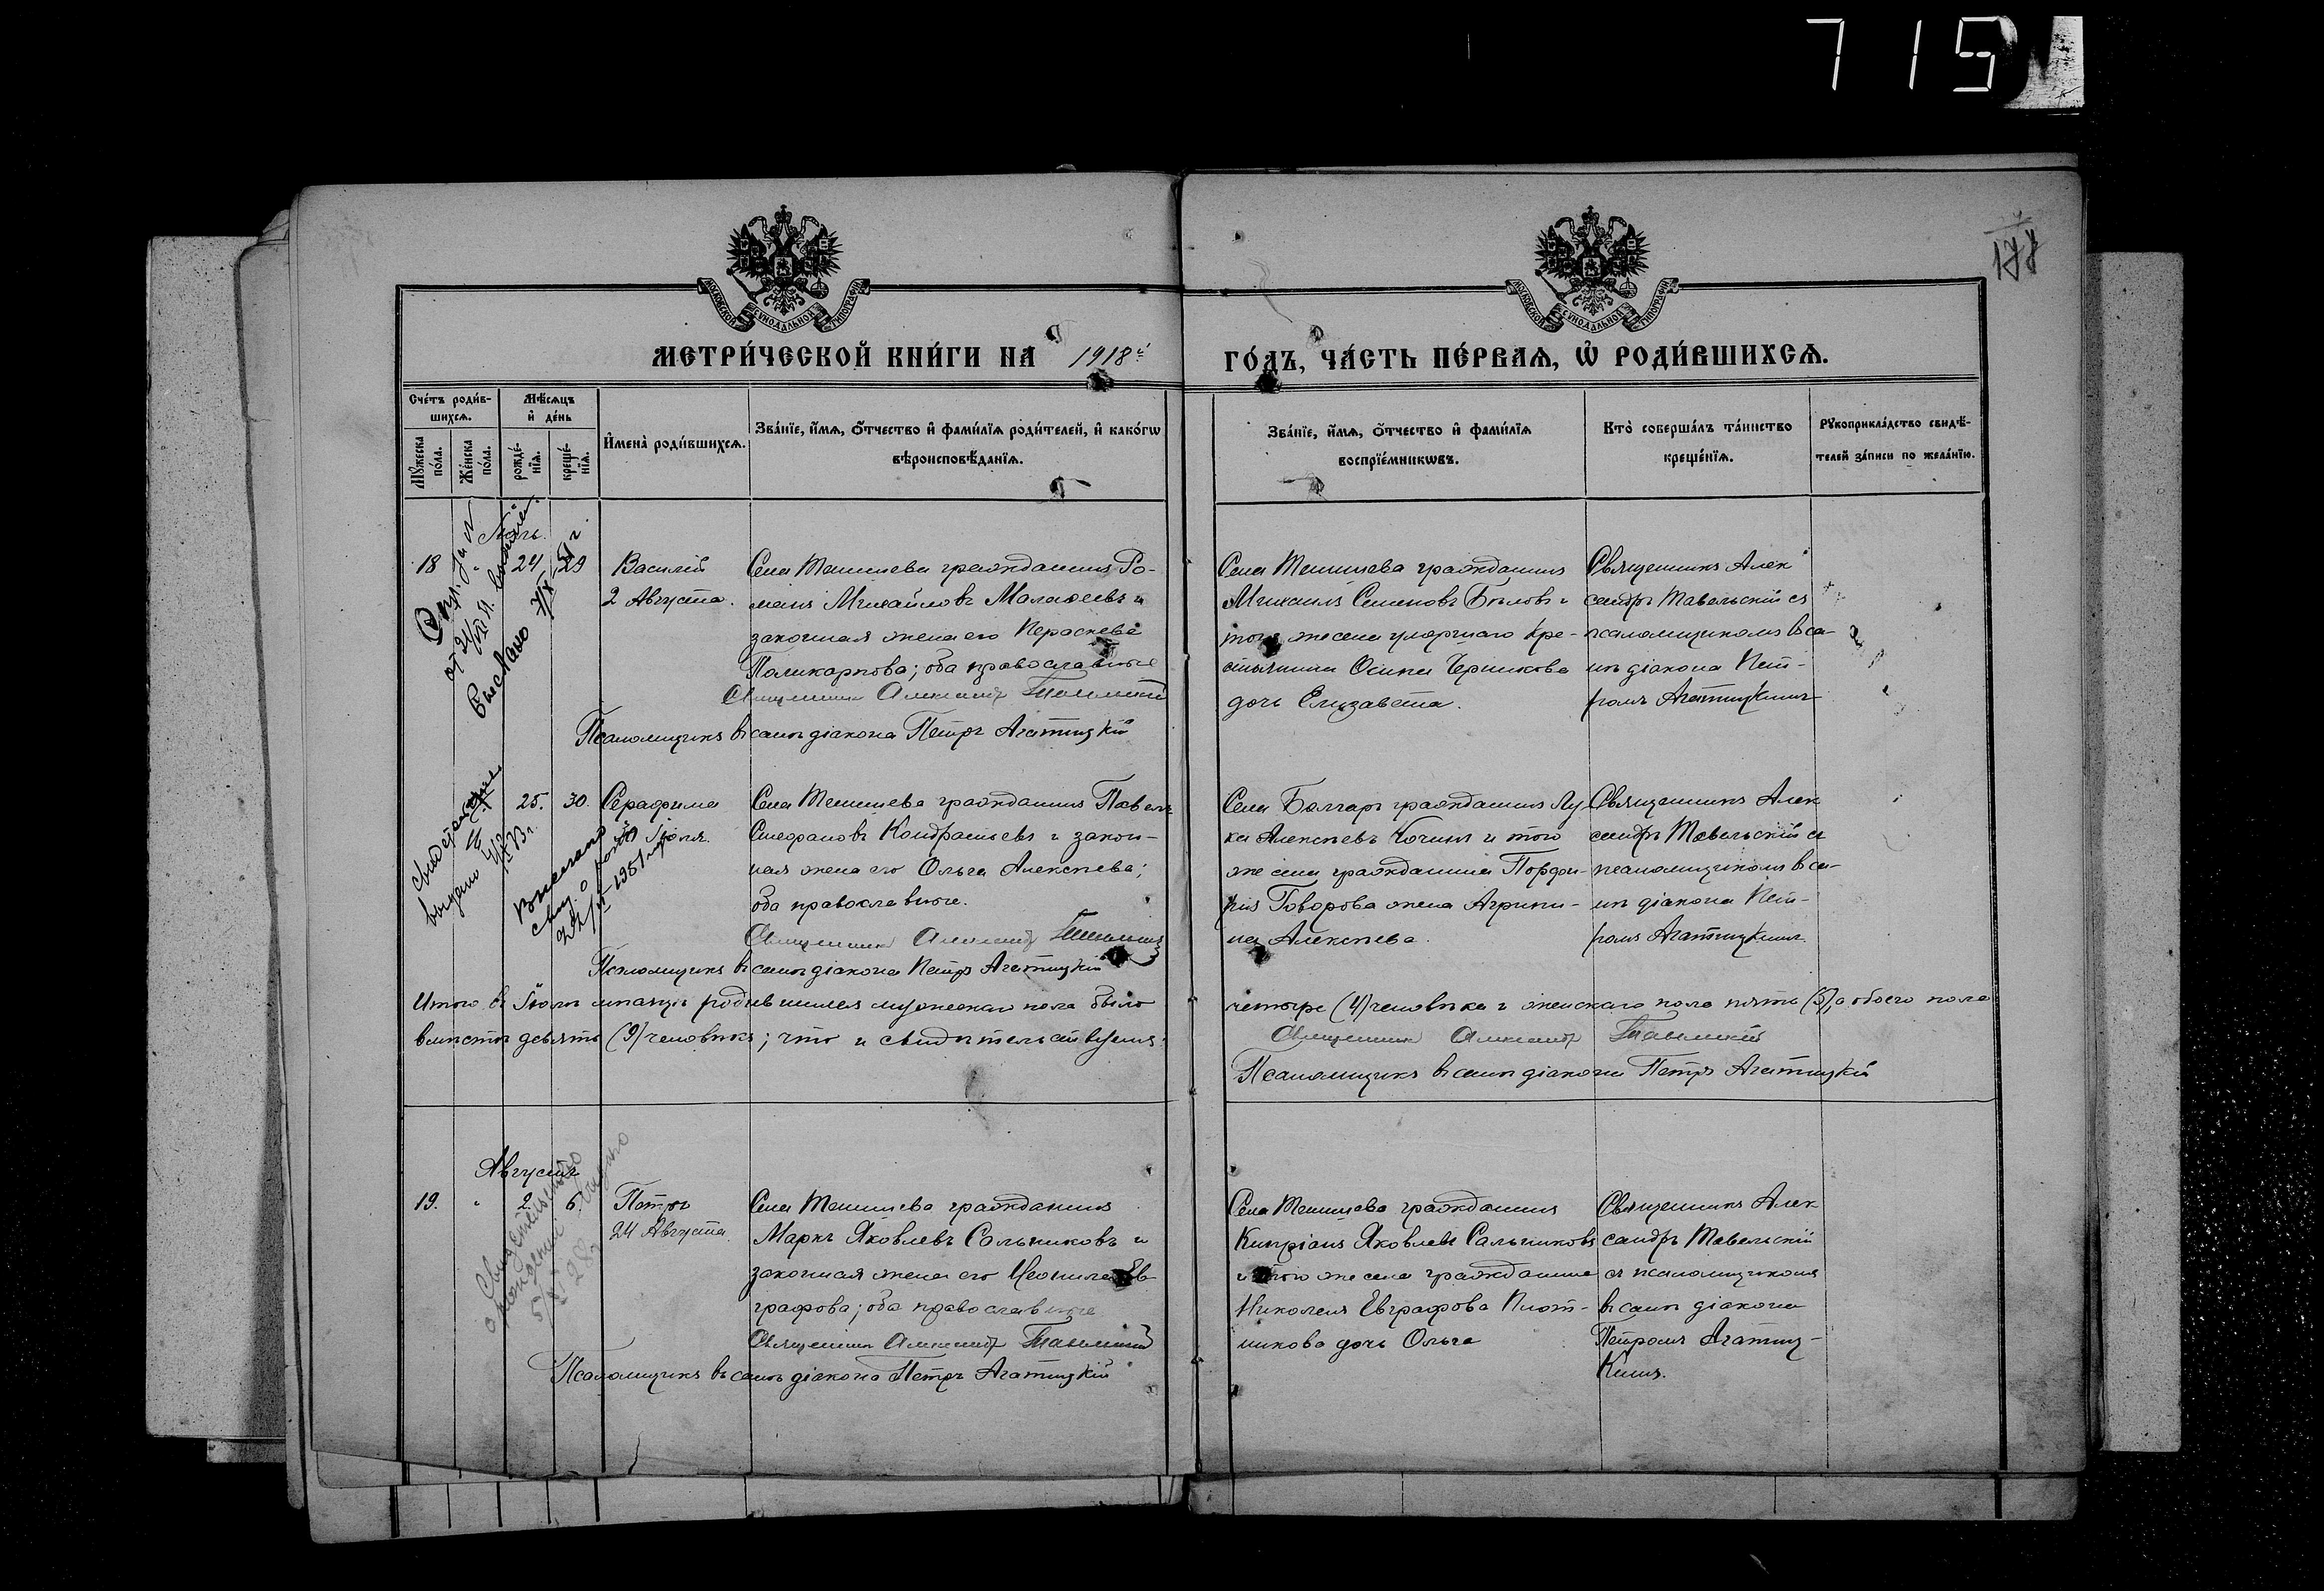 715
177
МОСКОВСКОЙ СѴНОДАЛЬНОЙ ТИПОГРАФІИ
МОСКОВСКОЙ СѴНОДАЛЬНОЙ ТИПОГРАФІИ
МЕТРИ́ЧЕСКОЙ КНИ́ГИ НА 1918й ГО́ДЪ, ЧА́СТЬ ПЕ́РВАѦ, Ѡ҆ РОДИ́ВШИХСѦ.
Сче́тъ роди́в-
шихсѧ.
Мѣ́сѧцъ
и҆ де́нь
Мꙋ́жеска
по́ла.
Же́нска
по́ла.
рожде́-
нїѧ.
креще́-
нїѧ.
И҆мена̀ роди́вшихсѧ.
Зва́нїе, и҆́мѧ, ѻ҆́тчество и҆ фами́лїѧ роди́телей, и҆ како́гѡ
вѣроисповѣ́данїѧ.
Зва́нїе, и҆́мѧ, ѻ҆́тчество и҆ фами́лїѧ
воспрїе́мникѡвъ.
Кто̀ соверша́лъ та́инство
креще́нїѧ.
Рꙋкоприкла́дство свидѣ́-
телей за́писи по жела́нїю.
18 " 24 29
Василій
2 Августа.
Села гражданинъ Ро-
манъ Михайловъ Малафеевъ и
законная жена его Параскева
Поликарпова; оба православные
Священникъ Александр Тавельский
Псаломщикъ въ санѣ діакона Петръ Агатицкій
Села гражданинъ
Михаилъ Семеновъ Быловъ и
того же села умершаго кре-
стьянина Осипа дочь Елизавета.
Священникъ Алек
сандръ Тавельскій съ
псаломщикомъ въ са-
нѣ діакона Пет-
ромъ Агатицкимъ
Выслано
25. 30.
Серафима
Іюля.
Села гражданинъ Павелъ
Стефановъ Кондратьевъ и закон-
ная жена его Ольга Алексѣева;
оба православные.
Священникъ Александр Тавельский
Псаломщикъ въ санѣ діакона Петръ Агатицкій
Села Болгаръ гражданинъ Лу
ка Алексѣевъ Кочинъ и того
же села гражданина Порфи-
рія Говорова жена Агрипи-
на Алексѣева.
Священникъ Алек
сандръ Тавельскій съ
псаломщикомъ въ са-
нѣ діакона Пет-
ромъ Агатицкимъ.
Итого въ Іюлѣ мѣсяцѣ родившихся мужескаго пола было четыре (4) человѣка и женскаго пола пять (5), а обоего пола
вмѣстѣ девять (9) человѣкъ; что и свидѣтельствуемъ:
Священникъ Александр Тавельский
Псаломщикъ въ санѣ діакона Петръ Агатицкій
Августъ
19. " 2. 6.
Петръ
24 Августа.
Села гражданинъ
Маркъ Яковлевъ Сальниковъ и
законная жена его Неонила Ев
графова; оба православные
Священникъ Александр Тавельский
Псаломщикъ въ санѣ діакона Петръ Агатицкій
Села гражданинъ
Кипріанъ Яковлевъ Сальниковъ
и того же села гражданина
Николая Евграфова Плот-
никова дочь Ольга
Священникъ Алек
сандръ Тавельскій
съ псаломщикомъ
въ санѣ діакона
Петромъ Агатиц-
кимъ.